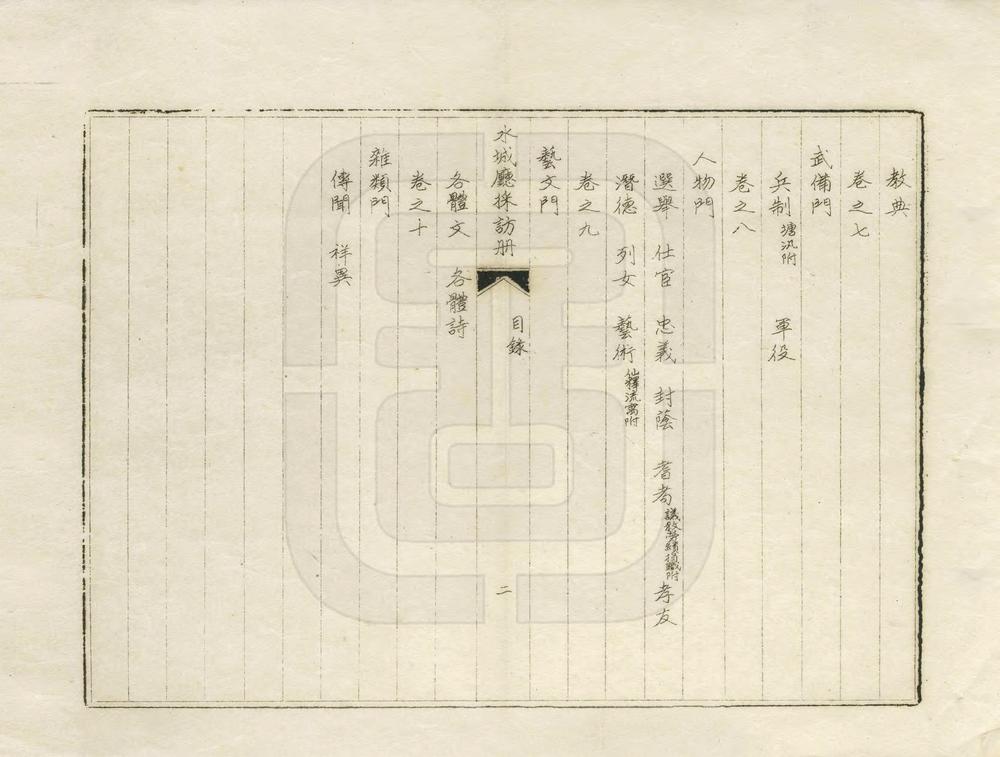 教典
卷之七
武備門
兵制 塘汛附 軍役
卷之八
人物門
選舉 仕宦 忠義 封蔭 耆耈 議敘勞績捐職附 孝友
潛德 列女 藝術 仙釋流寓附
卷之九
藝文門
水城廳採訪册 目錄 二
各體文 各體詩
卷之十
雜類門
傳聞 祥異